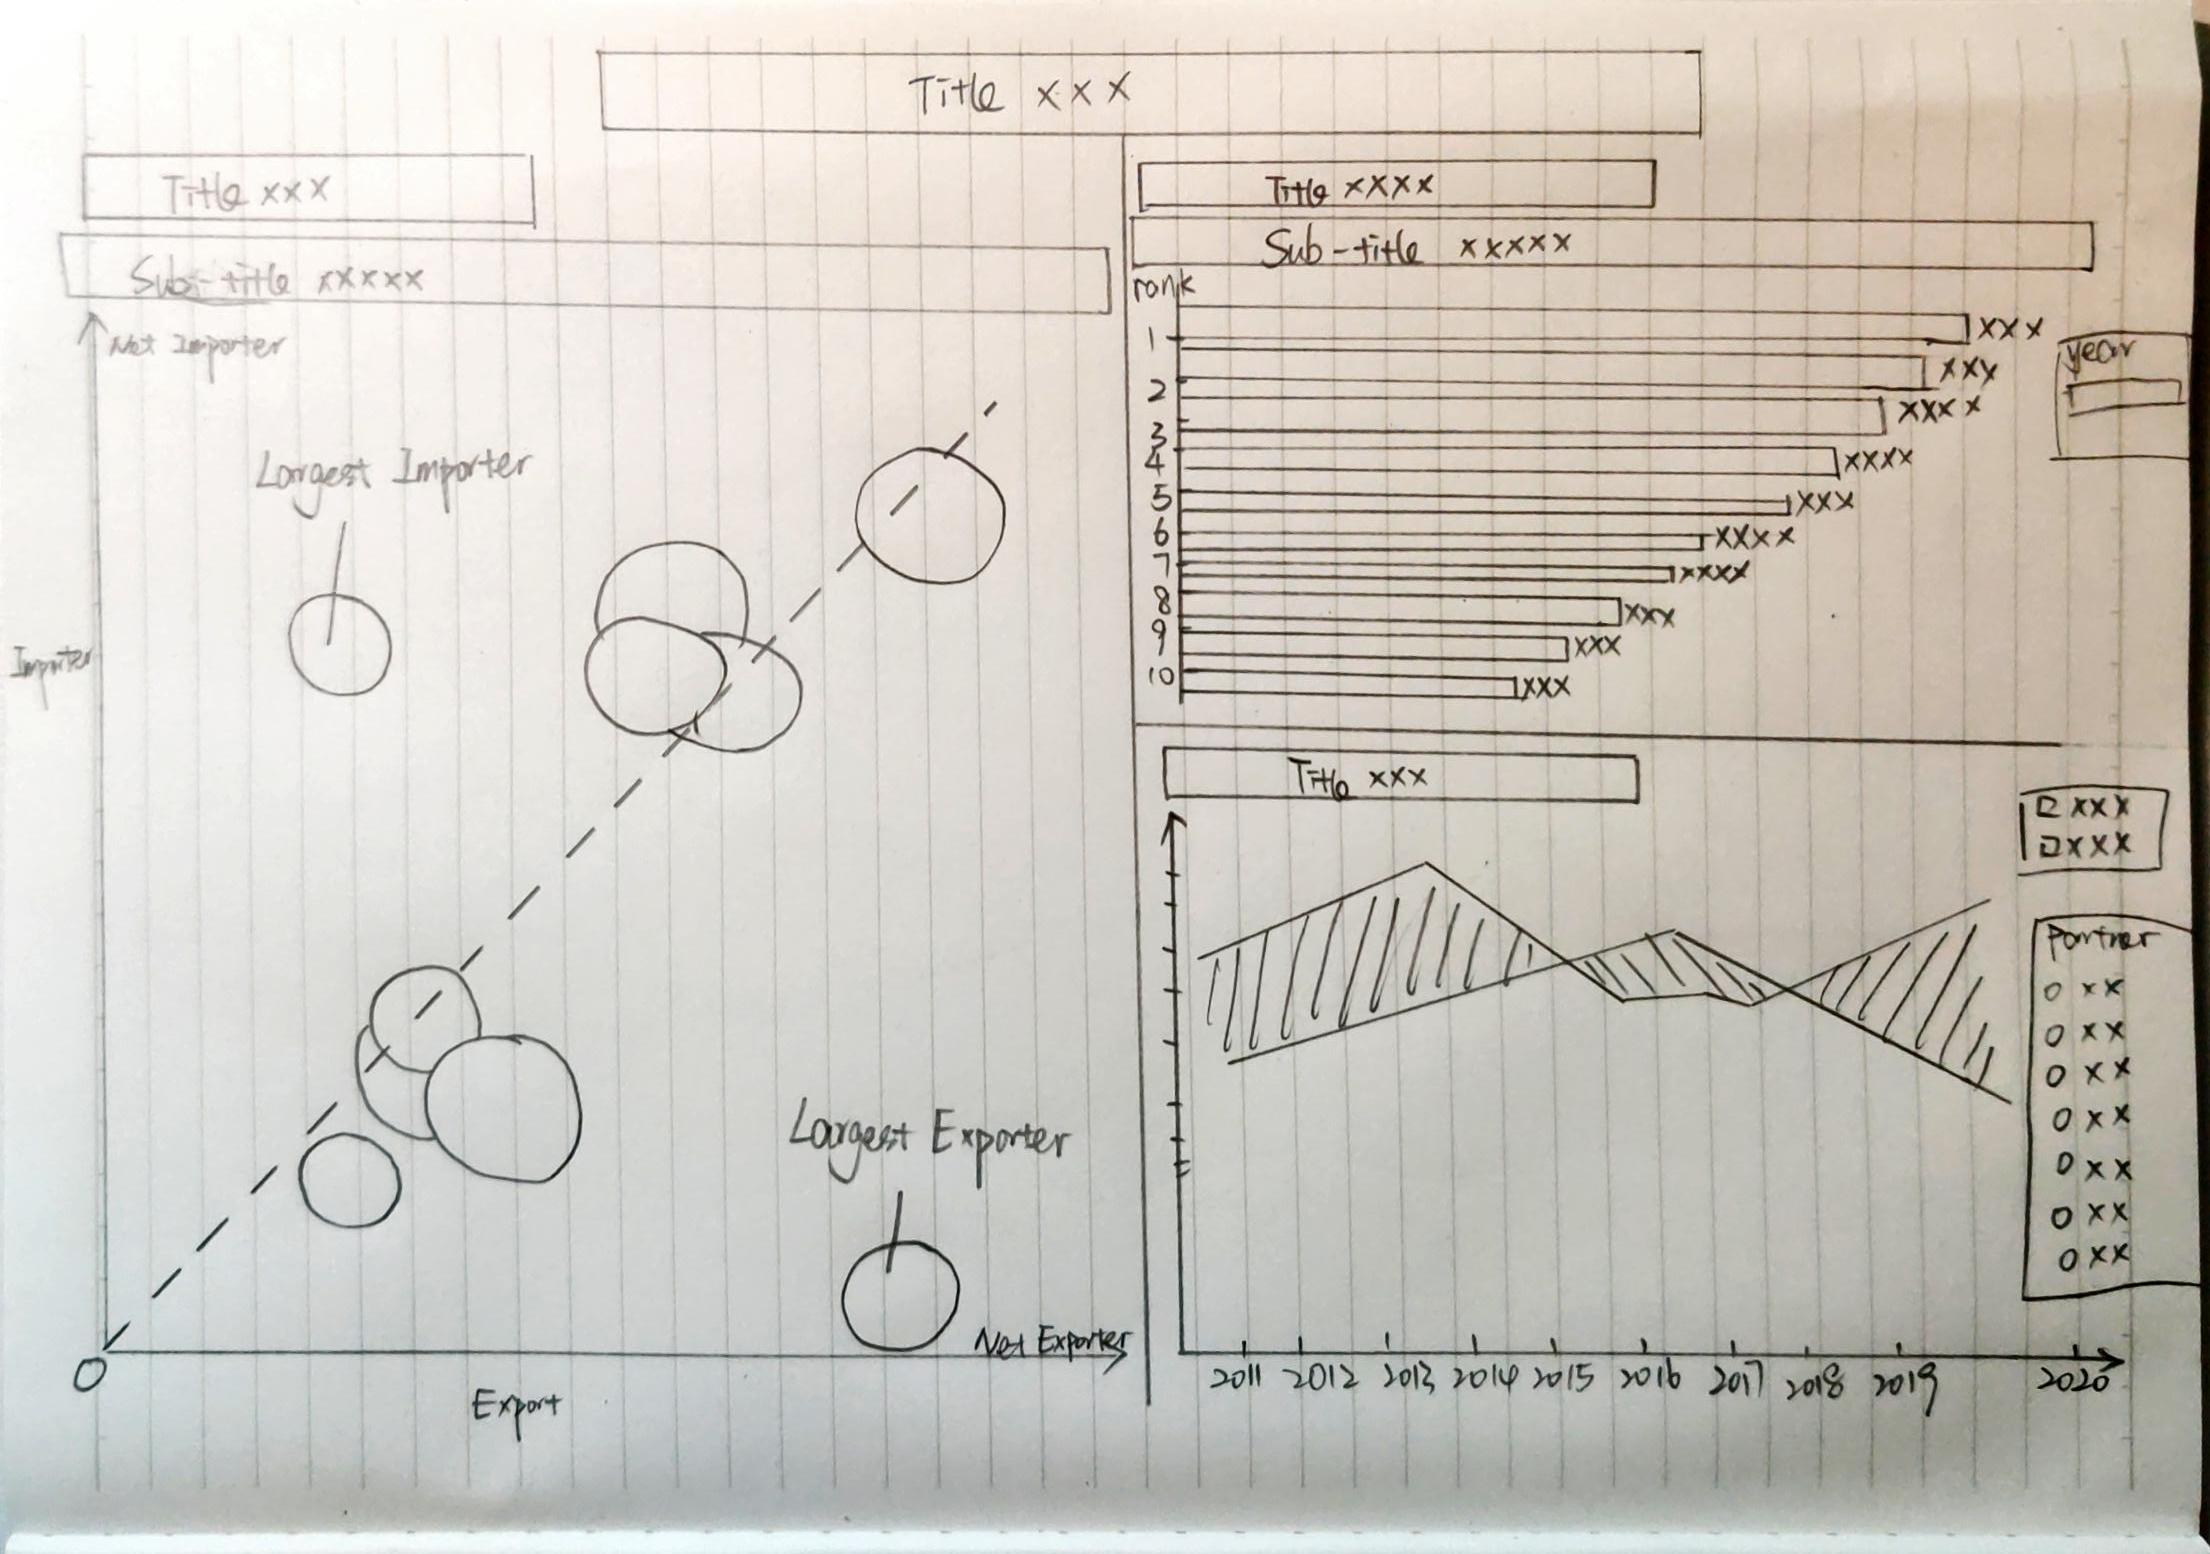 Title xxx
Title xxx
Sub-title xxxxx
Net Importer
Largest Importer
Importer
Largest Exporter
Net Exporter
O
Export
Title xxxx
Sub-title xxxxx
rank
1 xxx
2 xxx
3 xxxx
4 xxxx
5 xxx
6 xxxx
7 xxxx
8 xxx
9 xxx
10 xxx
year
Title xxx
xxx
xxx
Partner
xx
xx
xx
xx
xx
xx
xx
2011 2012 2013 2014 2015 2016 2017 2018 2019 2020